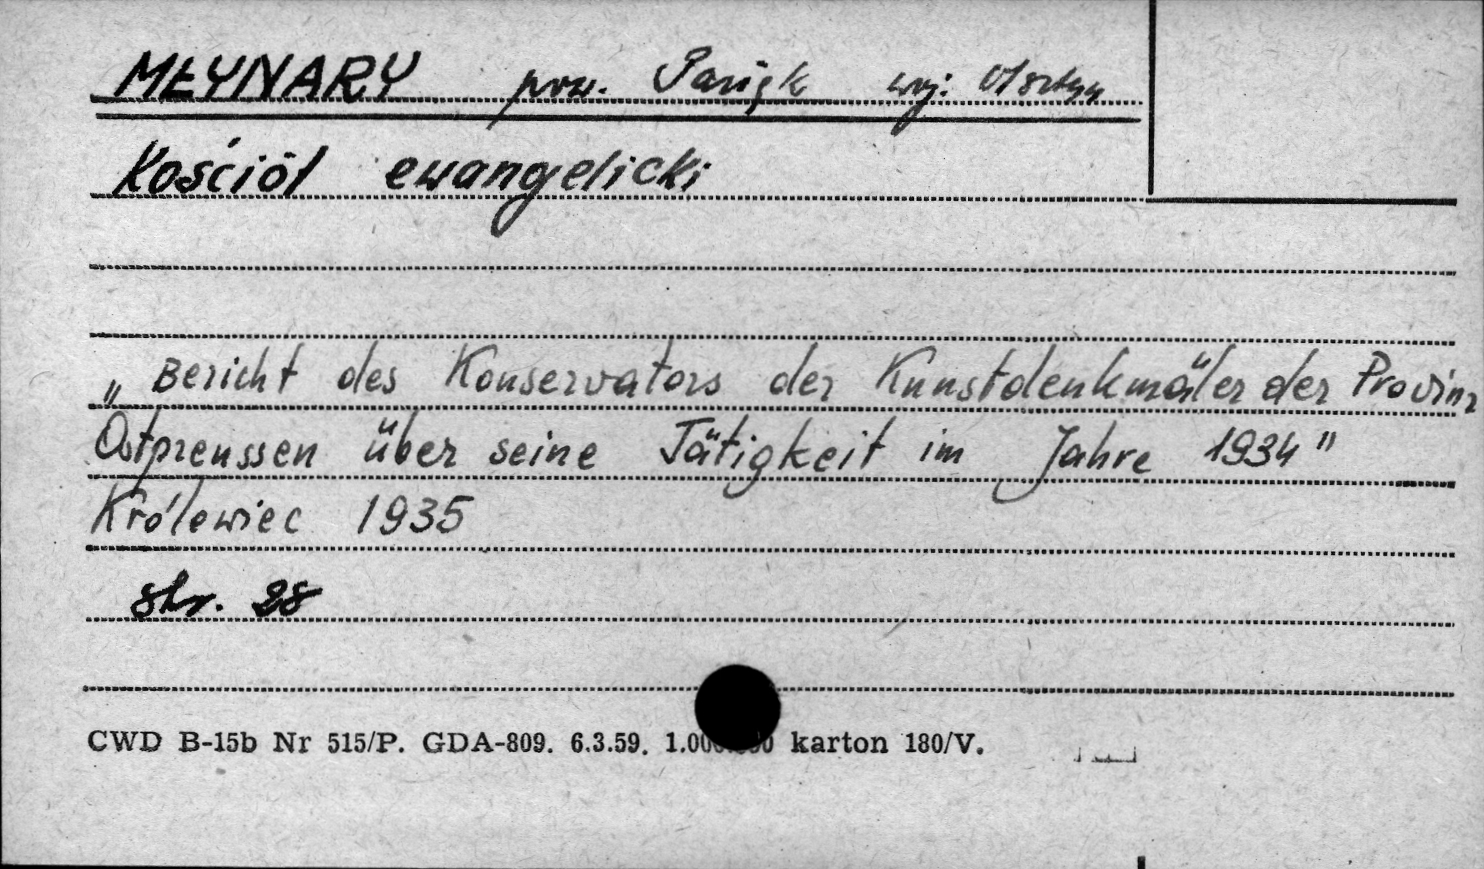 MŁYNARY pow. Pasłęk woj: Olsztyn
Kościół ewangelicki
„Bericht des Konservators der Kunstdenkmäler der Provinz
Ostpreussen über seine Tätigkeit im Jahre 1934"
Królewiec 1935
str. 28
CWD B-15b Nr 515/P. GDA-809. 6.3.59. karton 180/V.